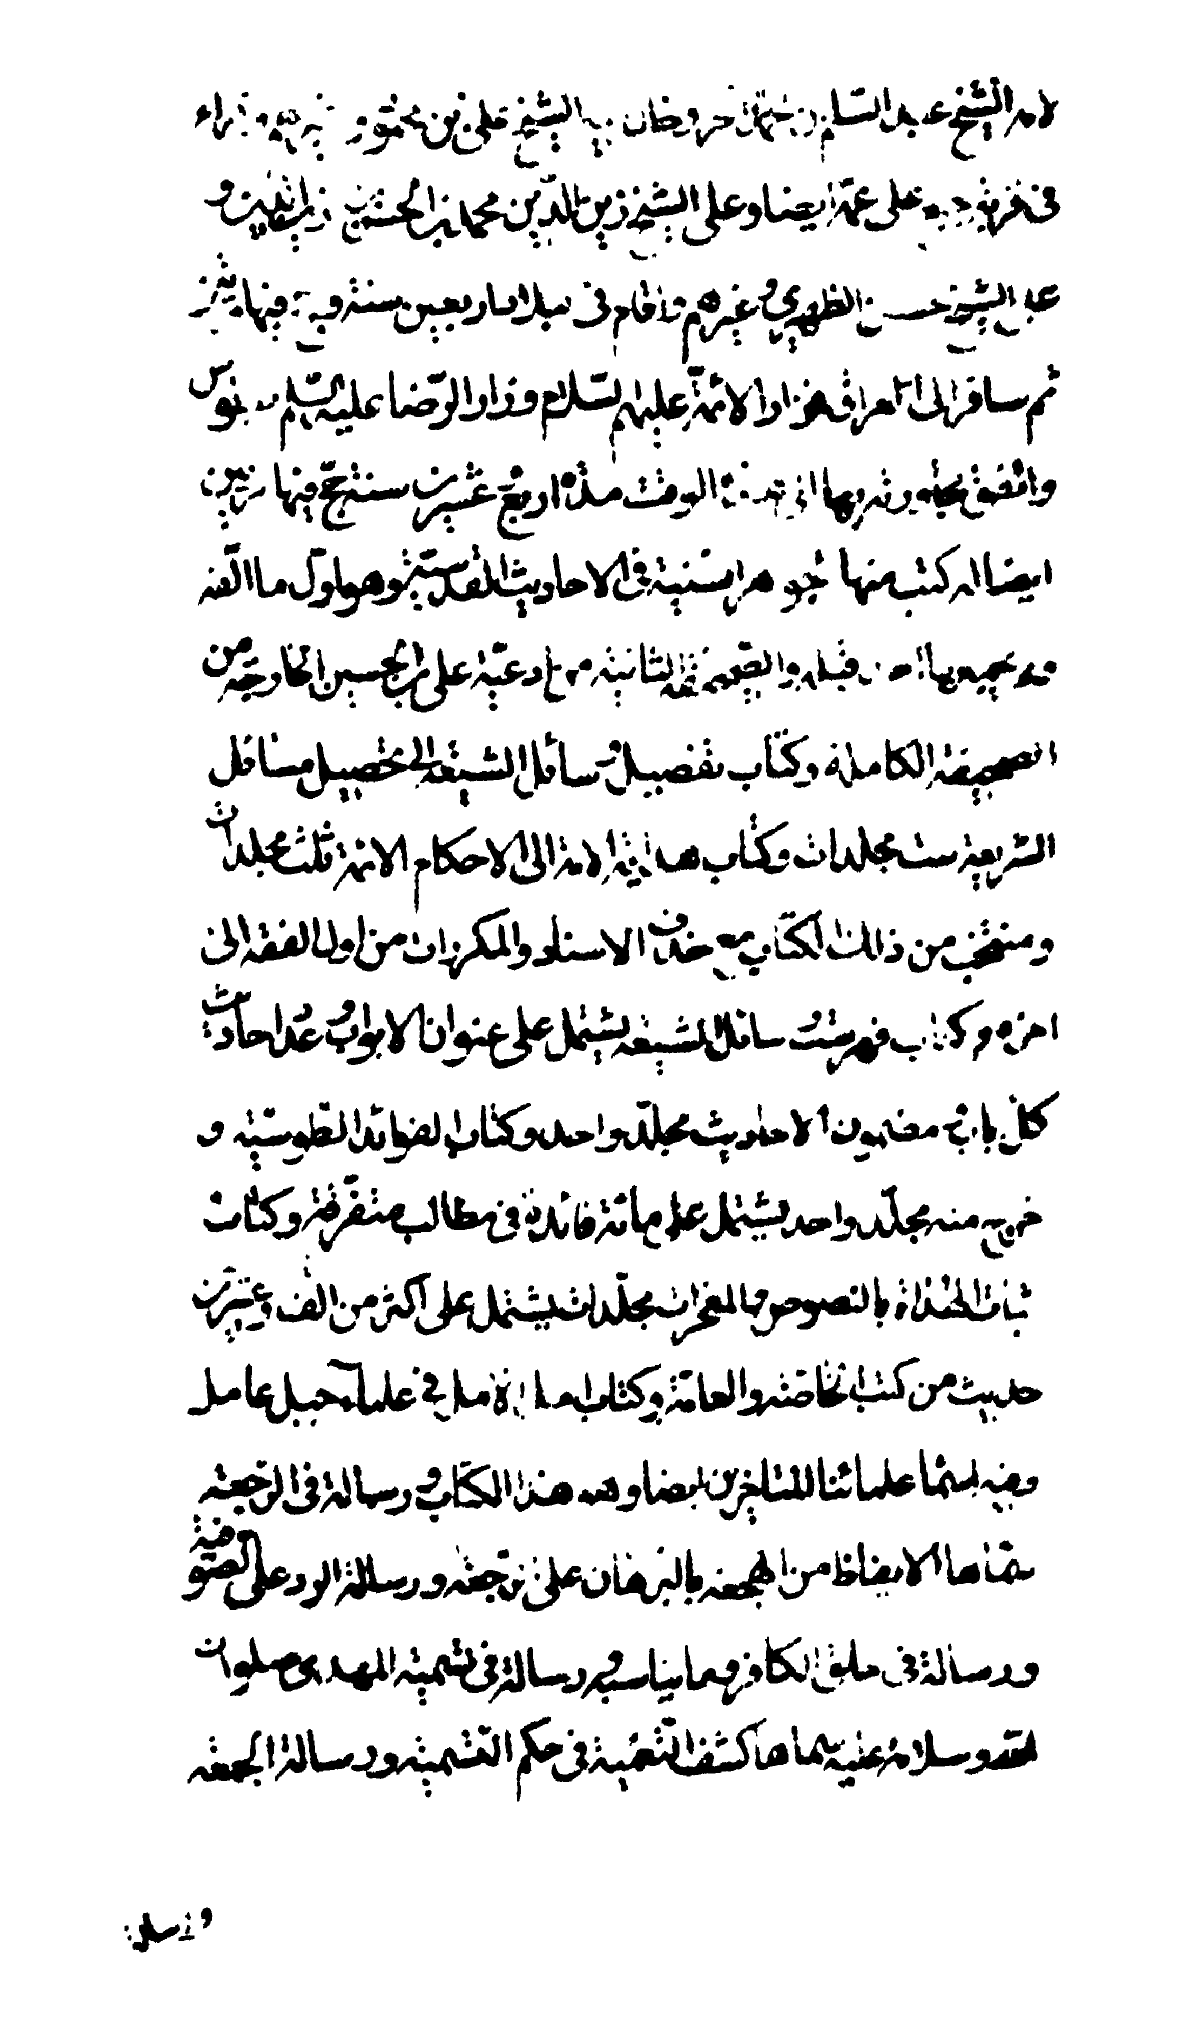 لامه الشيخ عبد السلام بن محمد الحر وخال ابيه الشيخ علي بن محمود وغيرهم وقراء
في قرية جبع على عمه ايضا وعلى الشيخ زين الدين بن محمد بن الحسن بن زين الدين و
على الشيخ حسين الظهيري وغيرهم واقام في البلاد اربعين سنة وحج فيها مرتين
ثم سافر الى العراق فزار الائمة عليهم السلام وزار الرضا عليه السلم بطوس
واتفق مجاورته بها الى هذا الوقت مدة اربع عشرين سنة حج فيها مرتين
ايضا له كتب منها الجواهر السنية في الاحاديث القدسية وهو اول ما الفه
ولم يجمعها احد قبله والصحيفة الثانية من ادعية علي بن الحسين الخارجة من
الصحيفة الكاملة وكتاب تفصيل وسائل الشيعة الى تحصيل مسائل
الشريعة ست مجلدات وكتاب هداية الامة الى الاحكام الائمة ثلث مجلدات
ومنتخب من ذلك الكتاب مع حذف الاسناد والمكررات من اول الفقه الى
اخره وكتاب فهرست وسائل الشيعة يشتمل على عنوان الابواب وعدد احاديث
كل باب ومضمون الاحاديث مجلد واحد وكتاب الفوائد الطوسية و
خرج منه مجلد واحد يشتمل على مائة فائدة في مطالب متفرقة وكتاب
اثبات الهداة بالنصوص والمعجزات مجلدات يشتمل على اكثر من الف وعشرين
حديث من كتب الخاصة والعامة وكتاب امل الامل في علماء جبل عامل
وفيه اسماء علمائنا المتاخرين ايضا وهو هذا الكتاب ورسالة في الرجعة
سماها الايقاظ من الهجعة بالبرهان على الرجعة ورسالة الرد على الصوفية
ورسالة في خلق الكافر وما يناسبه ورسالة في تسمية المهدي صلوات
الله وسلامه عليه سماها كشف التعمية في حكم التسمية ورسالة الجمعة
ورسالة